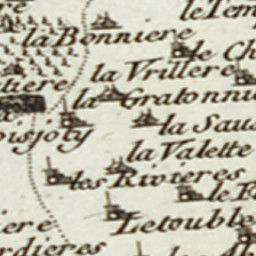 le Tem
la Bonniere
le Ch
la Vrillere
tiere
la Gratonni
la Saus
oisjoly
la Valette
les Rivieres
le F
iere
Letouble
rdieres